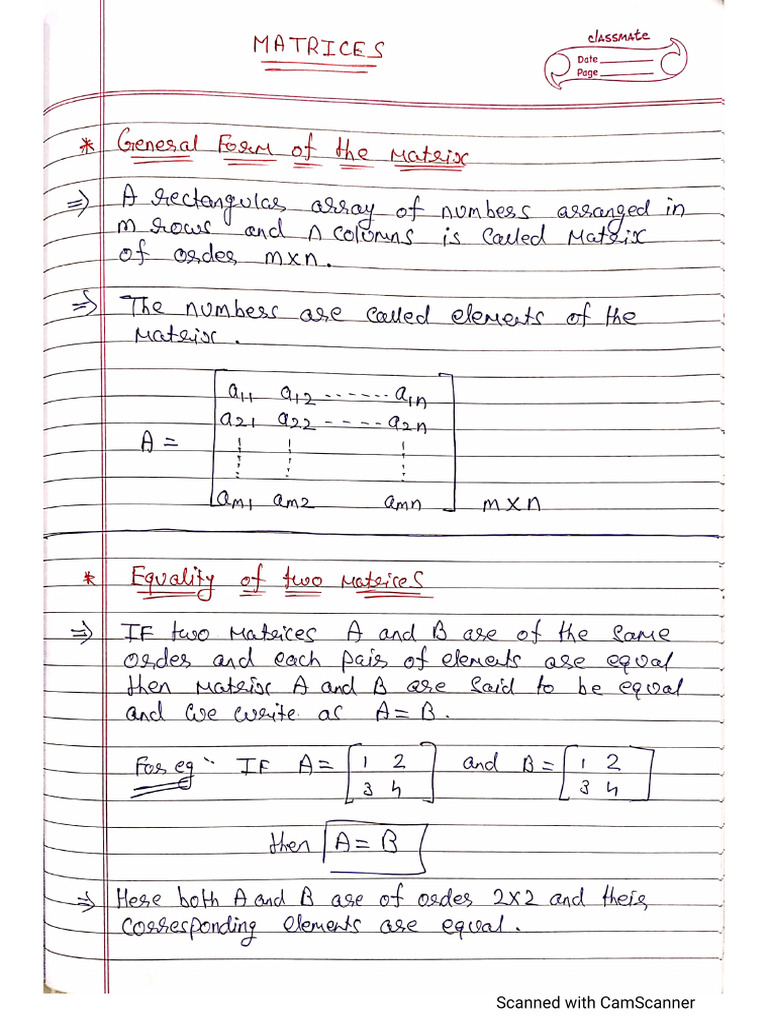 MATRICES
classmate
Date
Page
* General Form of the Matrix
⇒ A rectangular array of numbers arranged in
m rows and n columns is called Matrix
of order m×n.
⇒ The numbers are called elements of the
Matrix.
a11 a12 ------- a1n
a21 a22 ----- a2n
A =
am1 am2 amn m×n
* Equality of two Matrices
⇒ IF two Matrices A and B are of the same
order and each pair of elements are equal
then Matrix A and B are said to be equal
and we write as A = B.
For eg :- IF A = [1 2 and B = [1 2
3 4] 3 4]
then A = B
⇒ Here both A and B are of order 2×2 and their
corresponding elements are equal.
Scanned with CamScanner